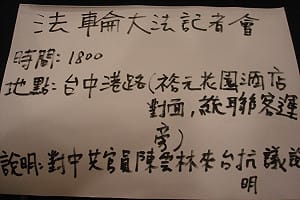 法輪大法記者會
時間:1800
地點:台中港路(裕元花園酒店
對面,統聯客運
旁)
說明:對中共官員陳雲林來台抗議說
明